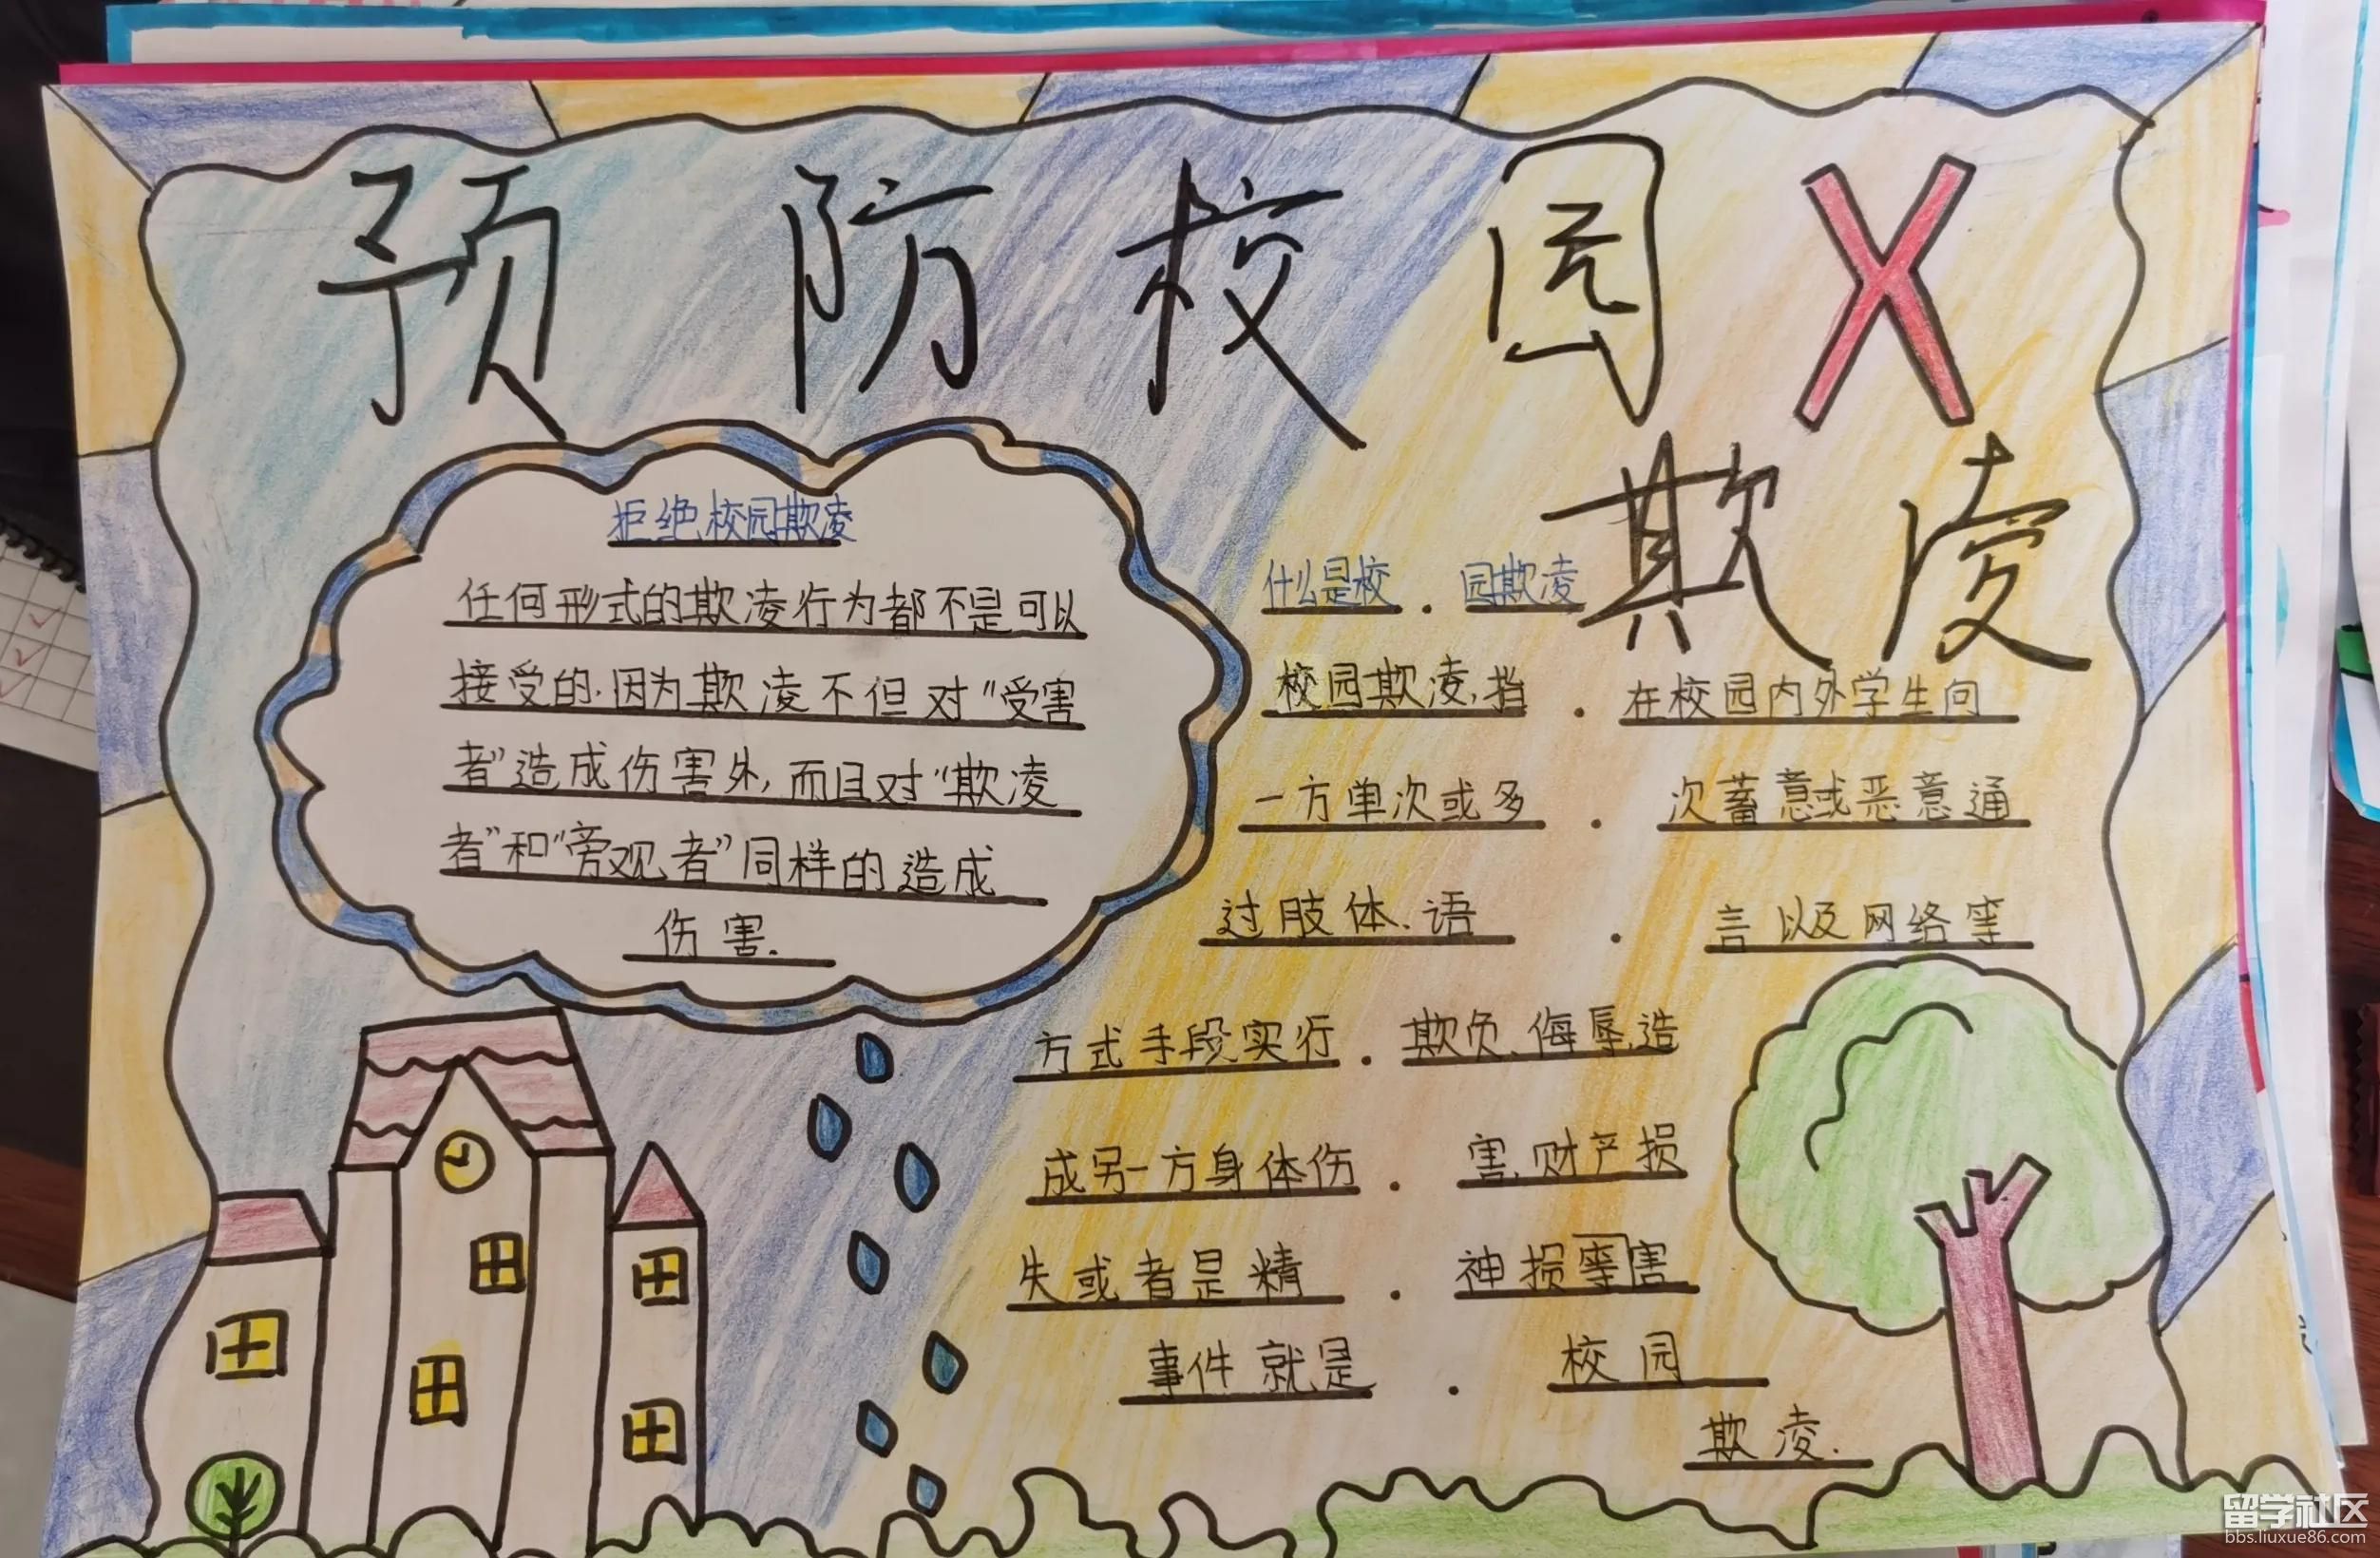 预防校园
欺凌
拒绝校园欺凌
任何形式的欺凌行为都不是可以
接受的.因为欺凌不但对“受害
者”造成伤害外,而且对“欺凌
者”和“旁观者”同样的造成
伤害.
什么是校.园欺凌
校园欺凌,指.在校园内外学生向
一方单次或多.次蓄意或恶意通
过肢体、语.言以及网络等
方式手段实行.欺负、侮辱造
成另一方身体伤.害、财产损
失或者是精.神损等害
事件就是.校园
欺凌.
留学社区
bbs.liuxue86.com